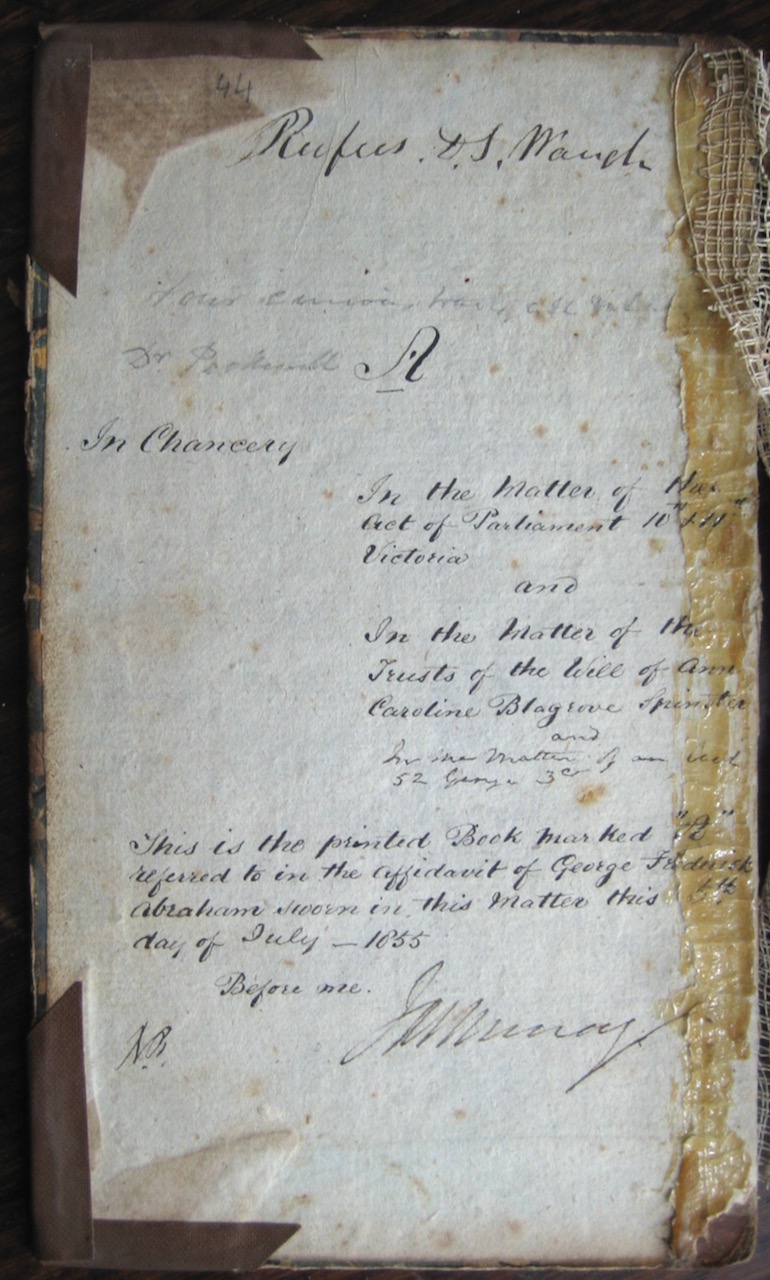 44
Rufus. D. S. Waugh
Your
Dr
A
In Chancery
In the Matter of the
Act of Parliament 10th & 11th
Victoria
and
In the Matter of the
Trusts of the Will of Ann
Caroline Blagrove Spinster
and
In the Matter of an Act
52 George 3rd
This is the printed Book marked "A"
referred to in the affidavit of George Frederick
Abraham sworn in this Matter this
day of July – 1855
Before me.